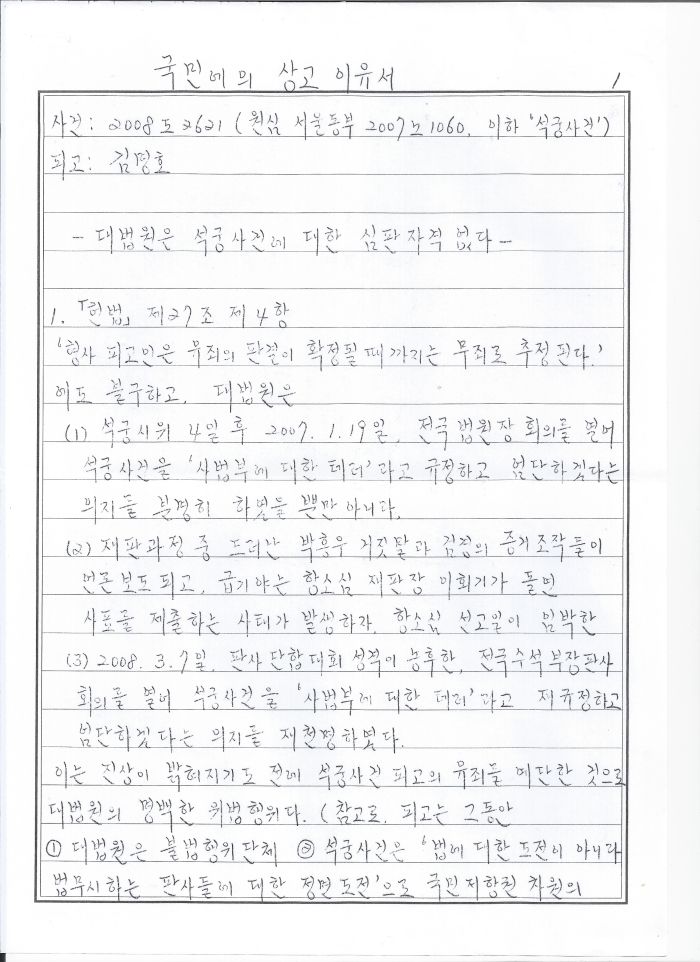 국민에의 상고 이유서
1
사건: 2008도2621 (원심 서울동부 2007노1060, 이하 '석궁사건')
피고: 김명호
- 대법원은 석궁사건에 대한 심판자격 없다 -
1. 「헌법」 제27조 제4항
'형사 피고인은 유죄의 판결이 확정될 때까지는 무죄로 추정된다.'
에도 불구하고, 대법원은
(1) 석궁시위 4일 후 2007. 1. 19일, 전국법원장 회의를 열어
석궁사건을 '사법부에 대한 테러'라고 규정하고 엄단하겠다는
의지를 분명히 하였을 뿐만 아니라,
(2) 재판과정 중 드러난 박홍우 거짓말과 김검의 증거조작들이
언론보도 되고, 급기야는 항소심 재판장 이회기가 돌연
사표를 제출하는 사태가 발생하자, 항소심 선고일이 임박한
(3) 2008. 3. 7일, 판사 단합대회 성격이 농후한, 전국수석부장판사
회의를 열어 석궁사건을 '사법부에 대한 테러'라고 재규정하고
엄단하겠다는 의지를 재천명하였다.
이는 진상이 밝혀지기도 전에 석궁사건 피고의 유죄를 예단한 것으로
대법원의 명백한 위법행위다. (참고로, 피고는 그동안
① 대법원은 불법행위단체 ② 석궁사건은 '법에 대한 도전이 아니라
법무시하는 판사들에 대한 정면도전'으로 국민저항권 차원의